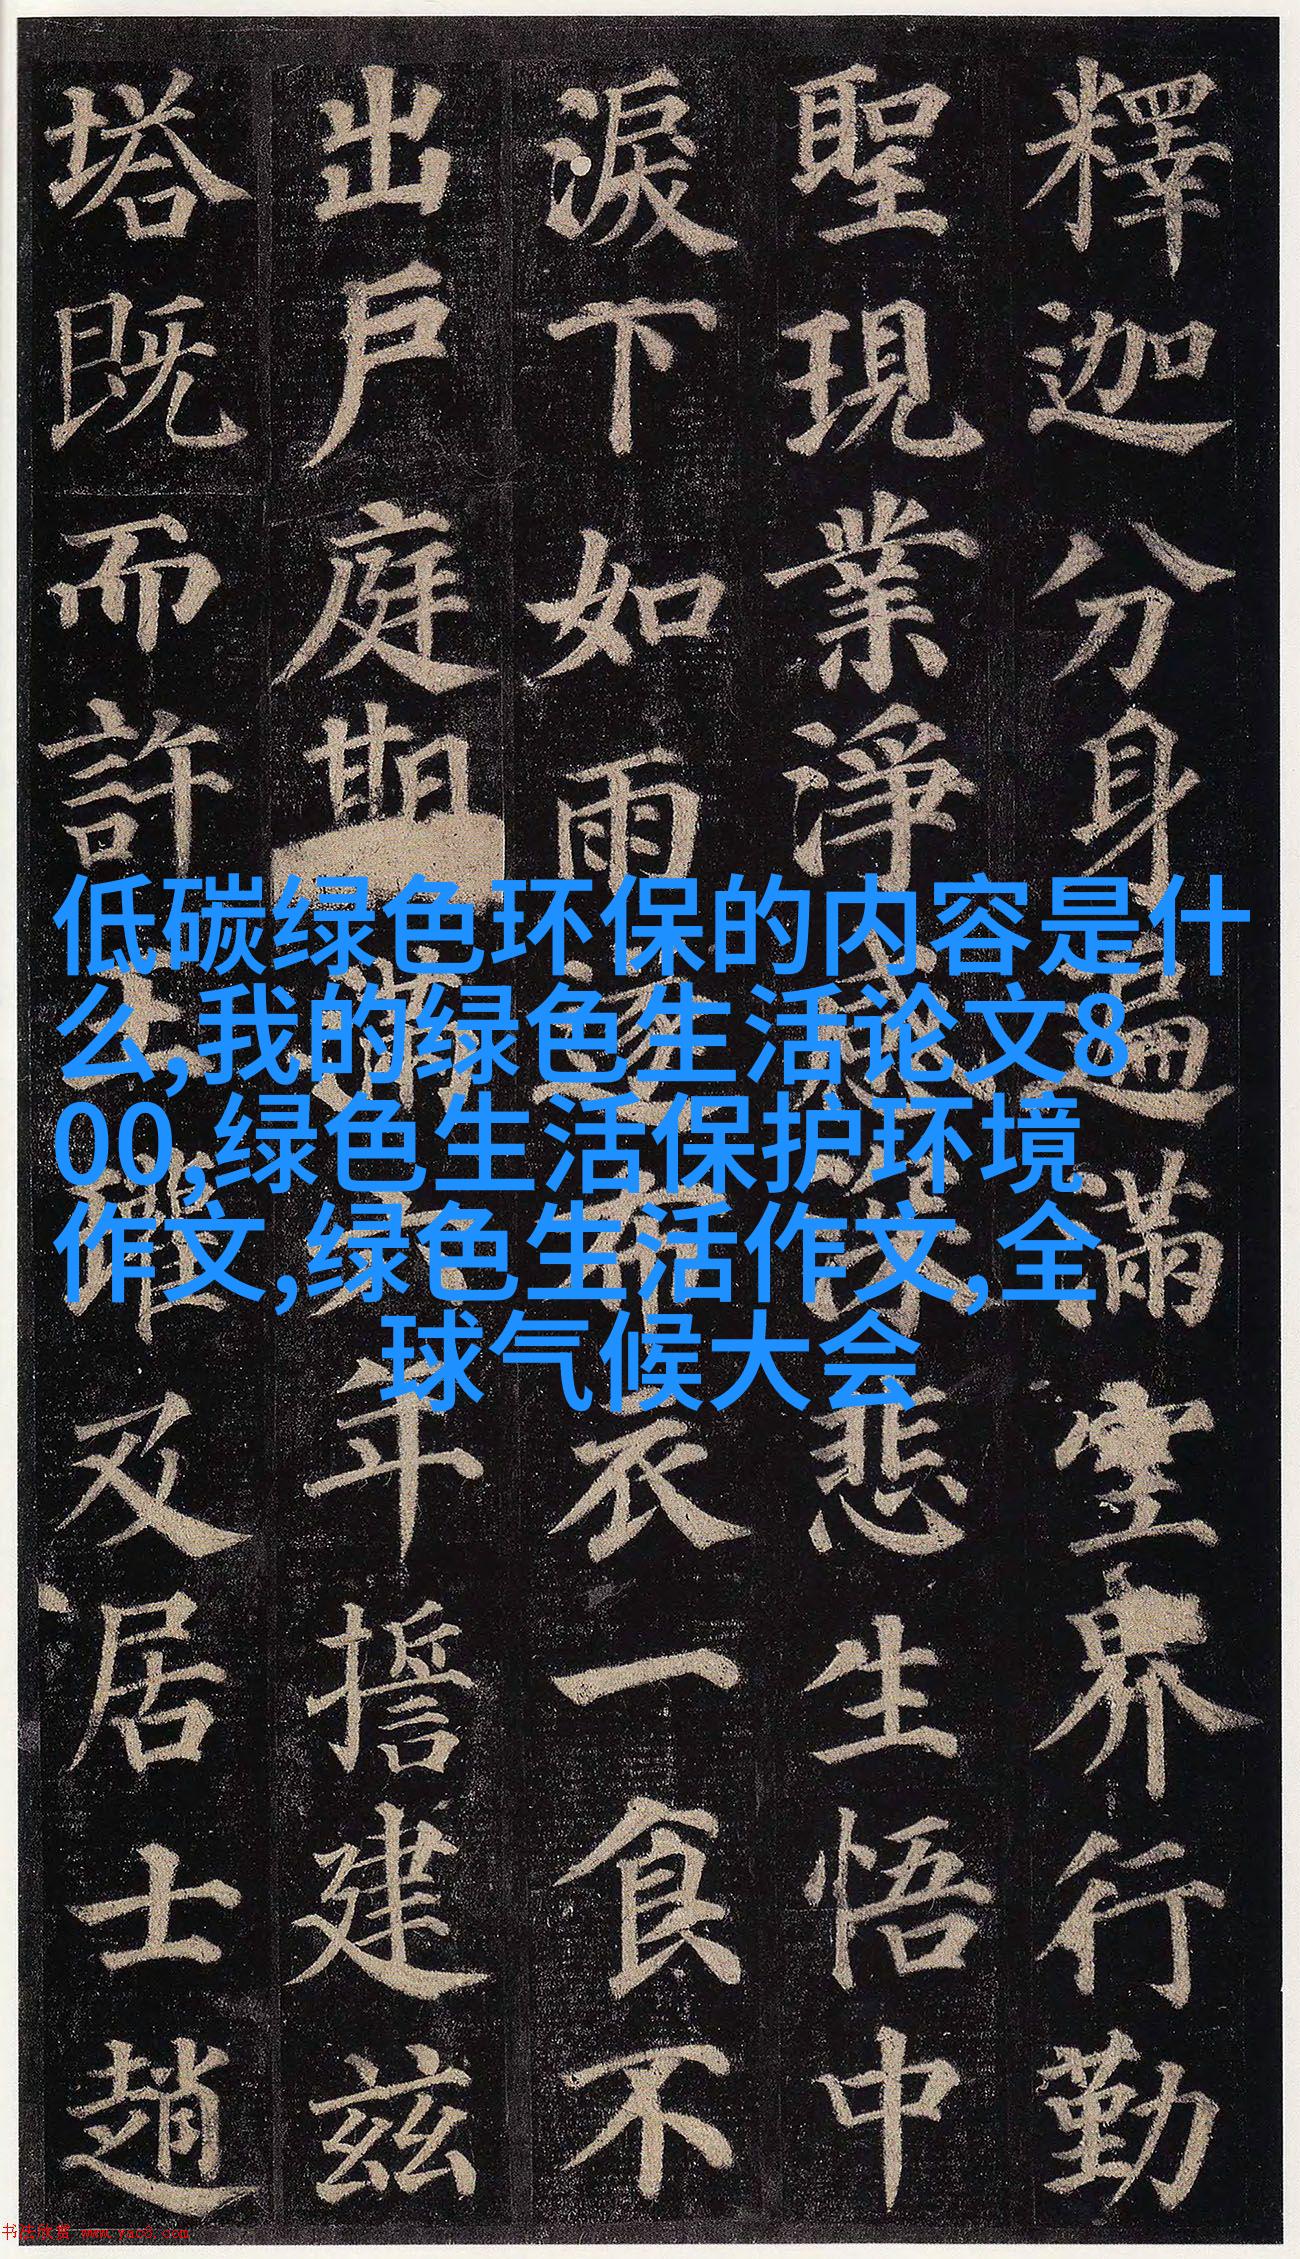 低碳绿色环保的内容是什
么,我的绿色生活论文8
00,绿色生活保护环境
作文,绿色生活作文,全
球气候大会
釋迦分身遍滿空界行勤
聖現業淨悲生悟中
淚下如雨衣一食不
出戶庭期滿年誓建茲
塔既而許瓘及居士趙
书法欣赏 www.yac8.com